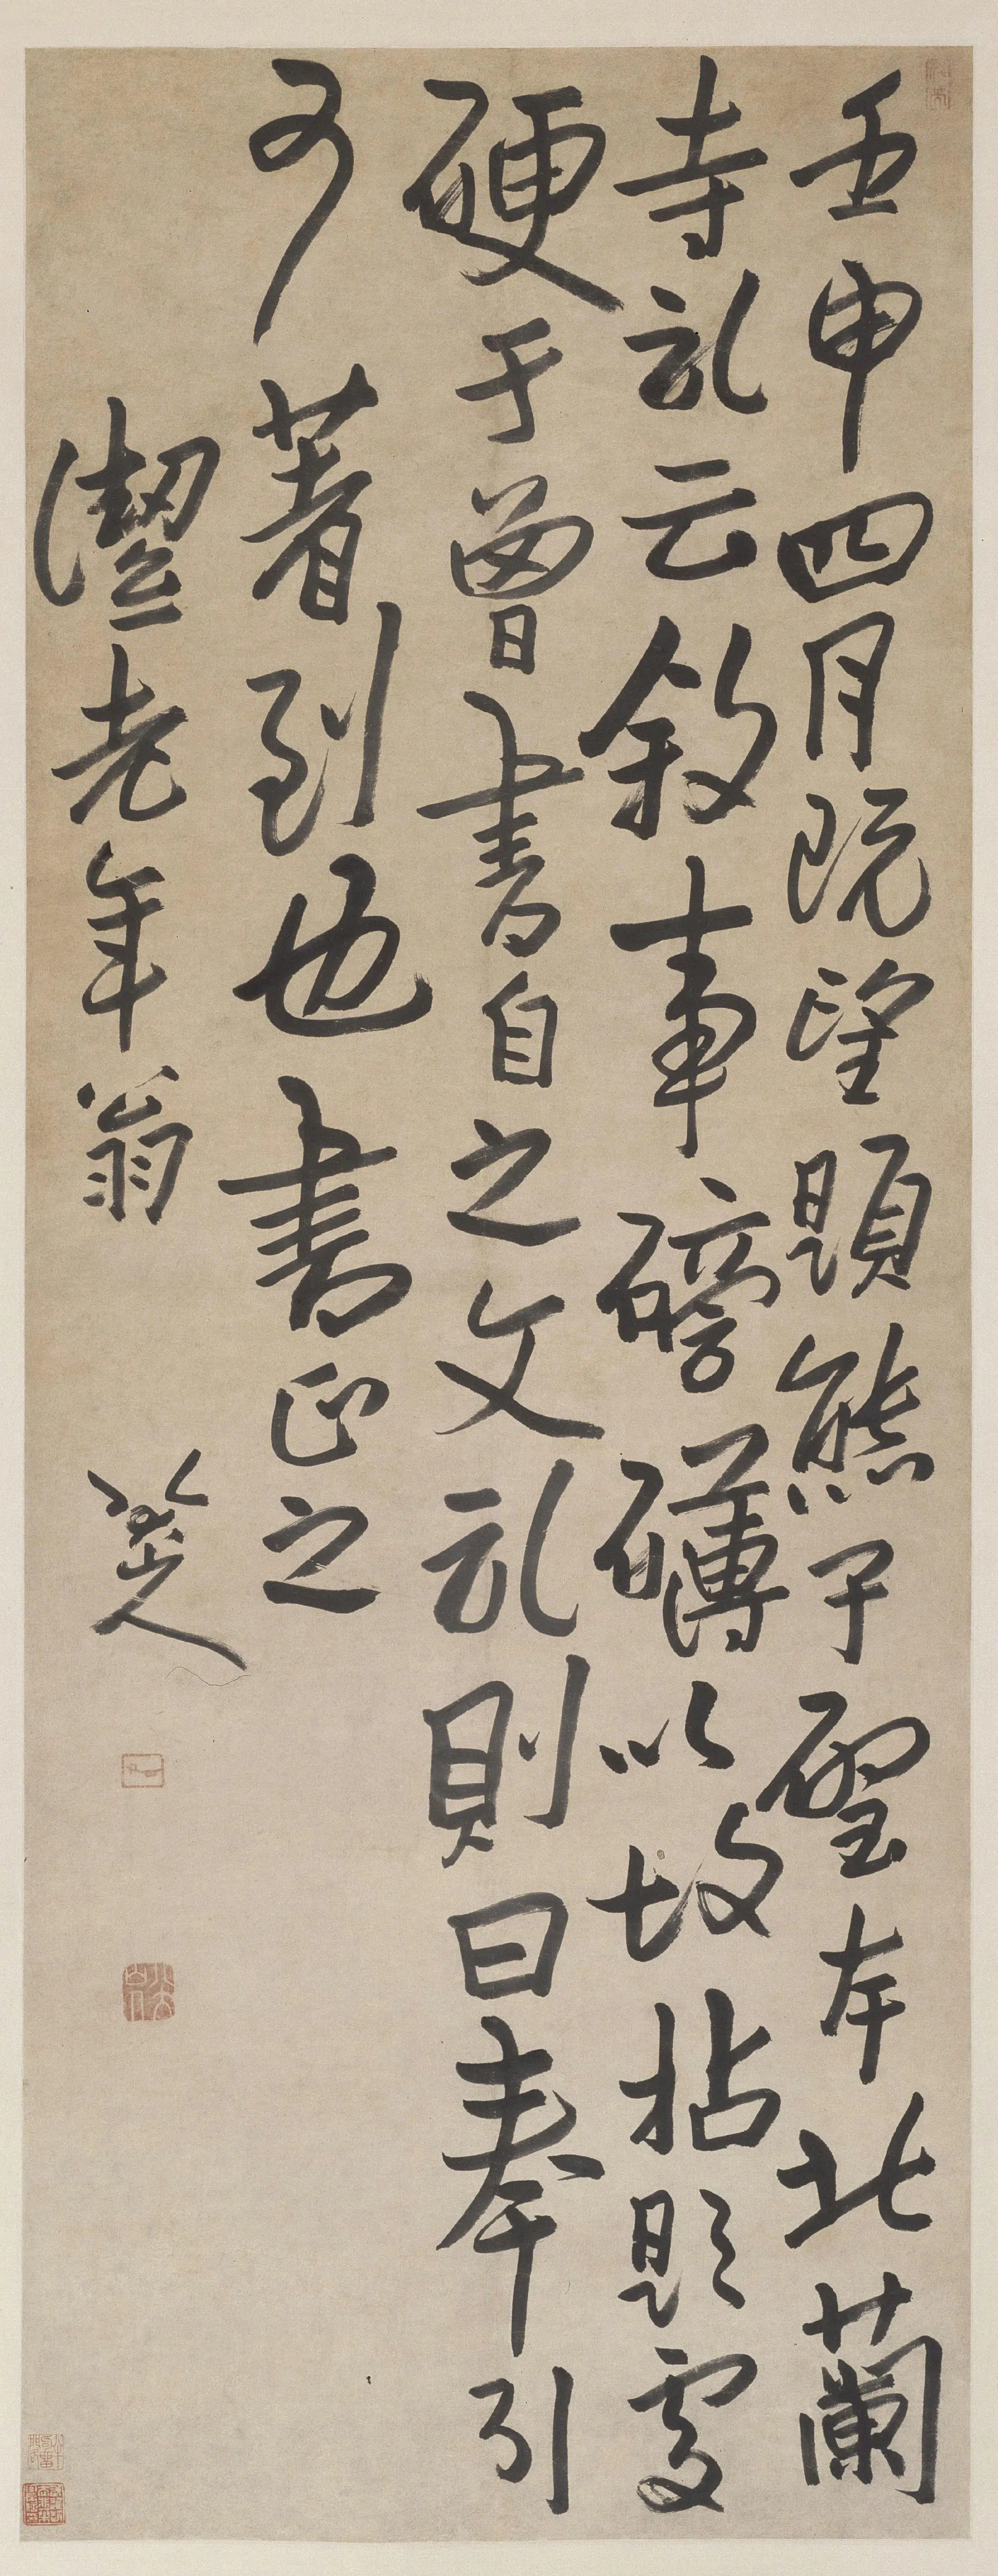 壬申四月既望題熊子本北蘭
寺記云敘事磅礴以拈題處
硬于曾書自之文記則曰奉引
著到也書正之
老年翁
八大山人